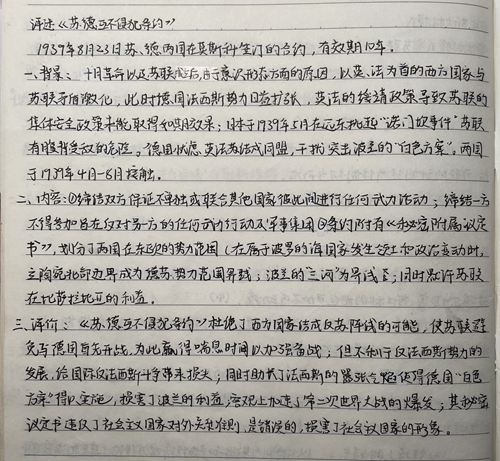 评述《苏德互不侵犯条约》
1939年8月23日苏、德两国在莫斯科签订的合约，有效期10年。
一、背景：十月革命以及苏联成立后，由于意识形态方面的原因，以英、法为首的西方国家与
苏联矛盾激化，此时德国法西斯势力日益扩张，英法的绥靖政策导致苏联的
集体安全政策未能取得如期效果；日本于1939年5月在远东挑起“诺门坎事件”苏联
有腹背受敌的危险。德国忧虑英法苏结成同盟，干扰突击波兰的“白色方案”。两国
于1939年4月—8月接触。
二、内容：①缔结双方保证不单独或联合其他国家彼此间进行任何武力活动；缔结一方
不得参加旨在反对另一方的任何武力行动及军事集团②条约附有《秘密附属议定
书》，划分了两国在东欧的势力范围（在属于波罗的海国家发生领土和政治变动时，
立陶宛北部边界成为德苏势力范围界线；波兰的“三河”为界线；同时默许苏联
在比萨拉比亚的利益。
三、评价：《苏、德互不侵犯条约》杜绝了西方国家结成反苏阵线的可能，使苏联避
免与德国首先开战，为此赢得喘息时间以加强备战；但不利于反法西斯势力的
发展，给国际反法西斯斗争带来损失；同时助长了法西斯的嚣张气焰使得德国“白色
方案”得以实施，损害了波兰的利益，客观上加速了第二次世界大战的爆发；其秘密
议定书违反了社会主义国家对外关系准则，是错误的，损害了社会主义国家的形象。